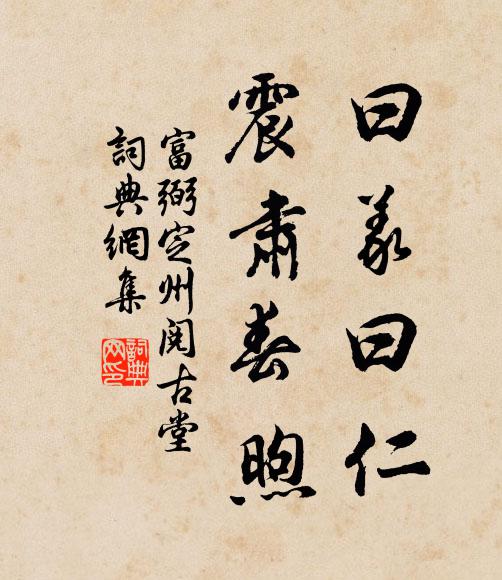 曰義曰仁
震肅春煦
富弼定州閱古堂
詞典網集
詞典網印